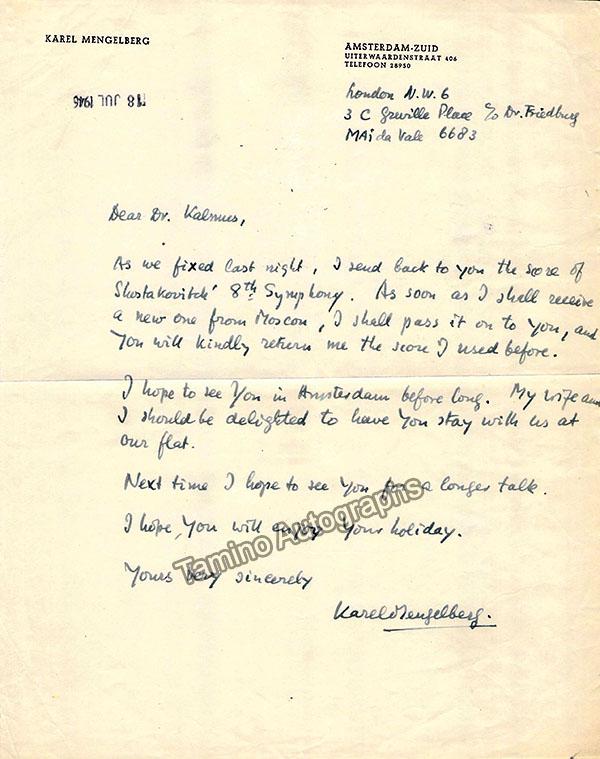 KAREL MENGELBERG
AMSTERDAM-ZUID
UITERWAARDENSTRAAT 406
TELEFOON 28950
18 JUL 1946
London N.W.6
3 C Greville Place c/o Dr. Friedburg
MAida Vale 6683
Dear Dr. Kalmus,
As we fixed last night, I send back to you the score of
Shostakovitch' 8th Symphony. As soon as I shall receive
a new one from Moscou, I shall pass it on to you, and
you will kindly return me the score I used before.
I hope to see You in Amsterdam before long. My wife and
I should be delighted to have You stay with us at
our flat.
Next time I hope to see You for a longer talk.
I hope, You will enjoy Your holiday.
Yours very sincerely
Karel Mengelberg.
Tamino Autographs